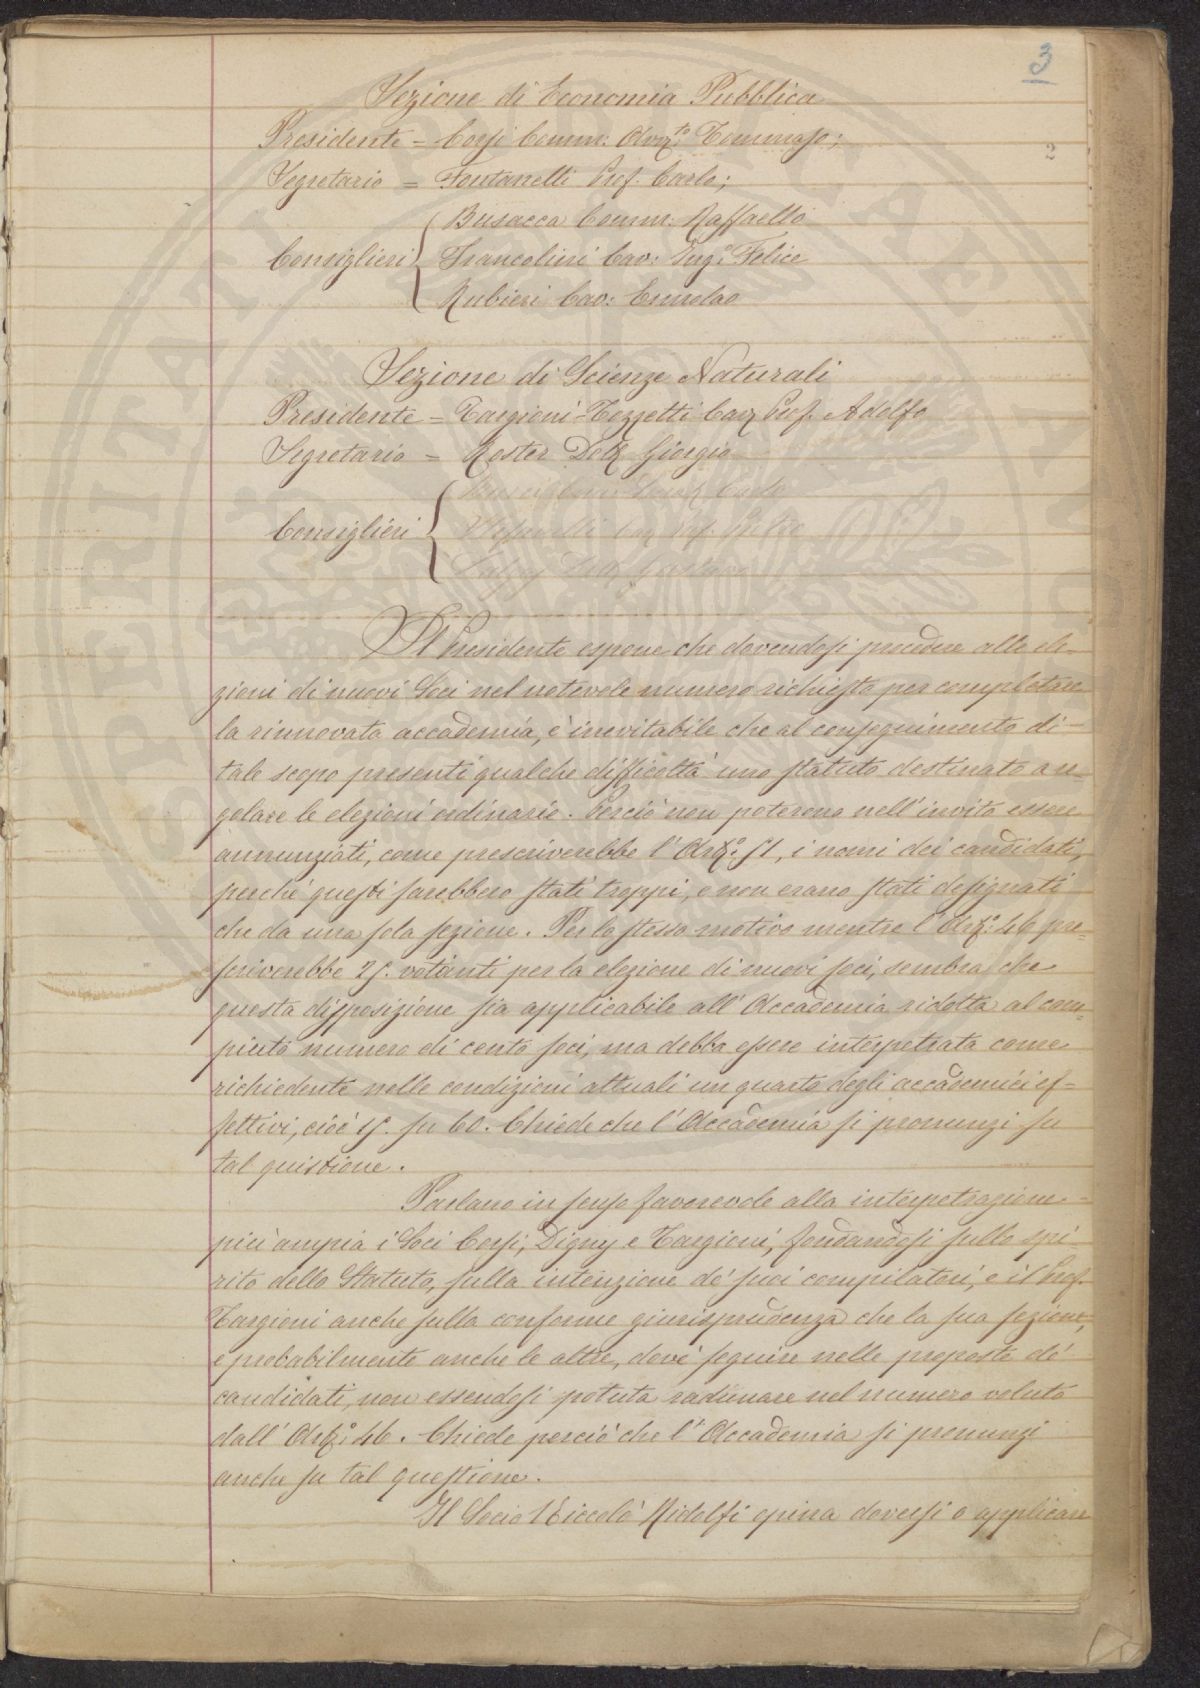 3
Sezione di Economia Pubblica
Presidente = Corsi Comm: Avv.to Tommaso;
2
Segretario = Fontanelli Prof. Carlo;
Busacca Comm: Raffaello
Consiglieri Francolini Cav: Ing.e Felice
Rubieri Cav: Ermolao
Sezione di Scienze Naturali
Presidente = Targioni-Tozzetti Cav Prof. Adolfo
Segretario = Roster Dott Giorgio
Carlo
Consiglieri Cav Prof.
Dott Gustavo
Il Presidente espone che dovendosi procedere alle ele-
zioni di nuovi Soci nel notevole numero richiesto per completare
la rinnovata accademia, è inevitabile che al conseguimento di
tale scopo presenti qualche difficoltà uno statuto destinato a re-
golare le elezioni ordinarie. Perciò non poterono nell'invito essere
annunziati, come prescriverebbe l'Art.o 51, i nomi dei candidati,
perché questi sarebbero stati troppi, e non erano stati designati
che da una sola sezione. Per lo stesso motivo mentre l'Art.o 46 pre-
scriverebbe 25. votanti per la elezione di nuovi soci, sembra che
questa disposizione sia applicabile all'Accademia ridotta al com-
piuto numero di cento soci, ma debba essere interpetrata come
richiedente nelle condizioni attuali un quarto degli accademici ef-
fettivi, cioè 15. su 60. Chiede che l'Accademia si pronunzi su
tal quistione.
Parlano in senso favorevole alla interpetrazione
più ampia i Soci Corsi, Digny e Targioni, fondandosi sullo spi
rito dello Statuto, sulla intenzione de' suoi compilatori, e il Prof.
Targioni anche sulla conforme giurisprudenza che la sua sezione,
e probabilmente anche le altre, dove' seguire nelle proposte de'
candidati, non essendosi potuta radunare nel numero voluto
dall'Art.o 46. Chiede perciò che l'Accademia si pronunzi
anche su tal questione.
Il Socio Niccolò Ridolfi opina doversi o applicare